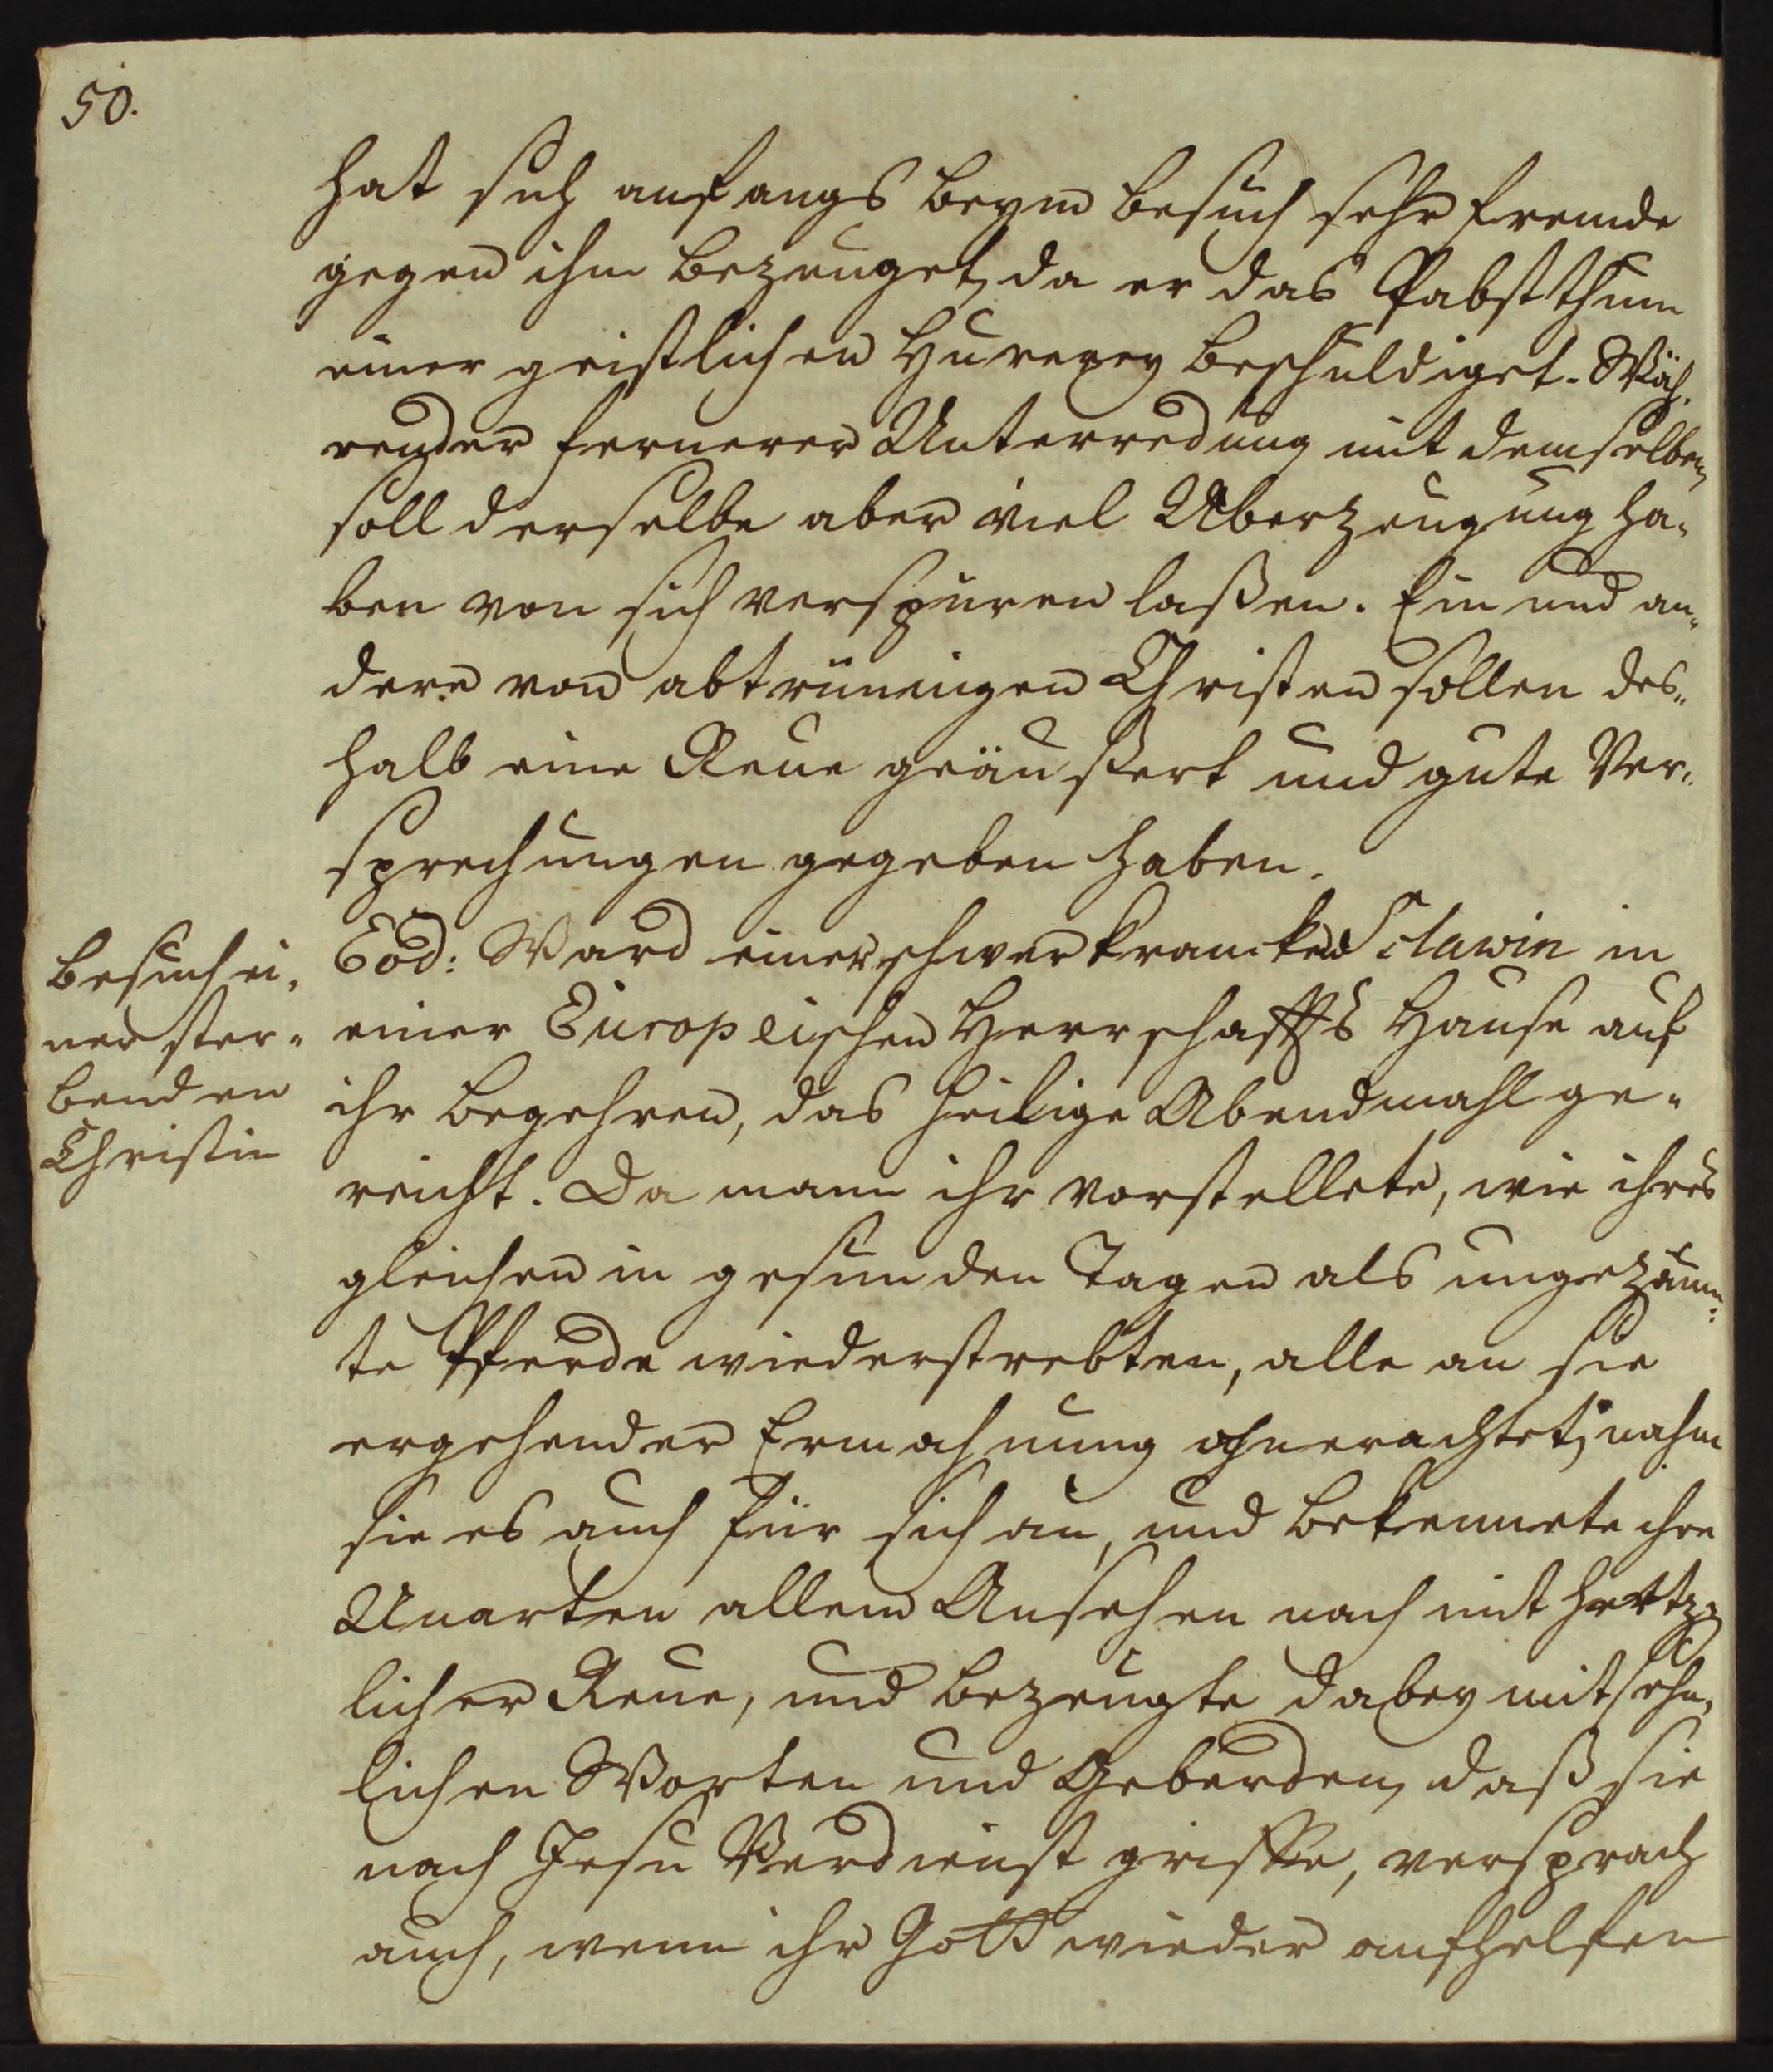 50.
hat sich anfangs beym besuch sehr fremde
gegen ihm bezeuget, da er das Pabstthum
einer geistlichen Hurerey beschuldiget. Wäh-
render fernerer Unterredung mit demselben,
soll derselbe aber viel Uberzeugung ha-
ben von sich verspüren laßen. Ein und an-
dere von abtrünnigen Christen sollen des-
halb eine Reue geäußert und gute Ver-
sprechungen gegeben haben.
Besuch ei-
ner ster-
benden
Christin
Eod: Ward einer schwer krancken Sclawin in
einer Europeischen Herrschaffts Hause auf
ihr begehren, das heilige Abendmahl ge-
reicht. Da mann ihr vorstellete, wie ihres
gleichen in gesunden Tagen als ungezäum-
te Pferde wiederstrebten, alle an sie
ergehender Ermahnung ohnerachtet; nahm
sie es auch für sich an, und bekennete ihre
Unarten allem Ansehen nach mit hertz-
licher Reue, und bezeugte dabey mit sehn-
lichen Worten und Geberden, daß sie
nach Jesu Verdienst griffe, versprach
auch, wenn ihr Gott wieder aufhelfen